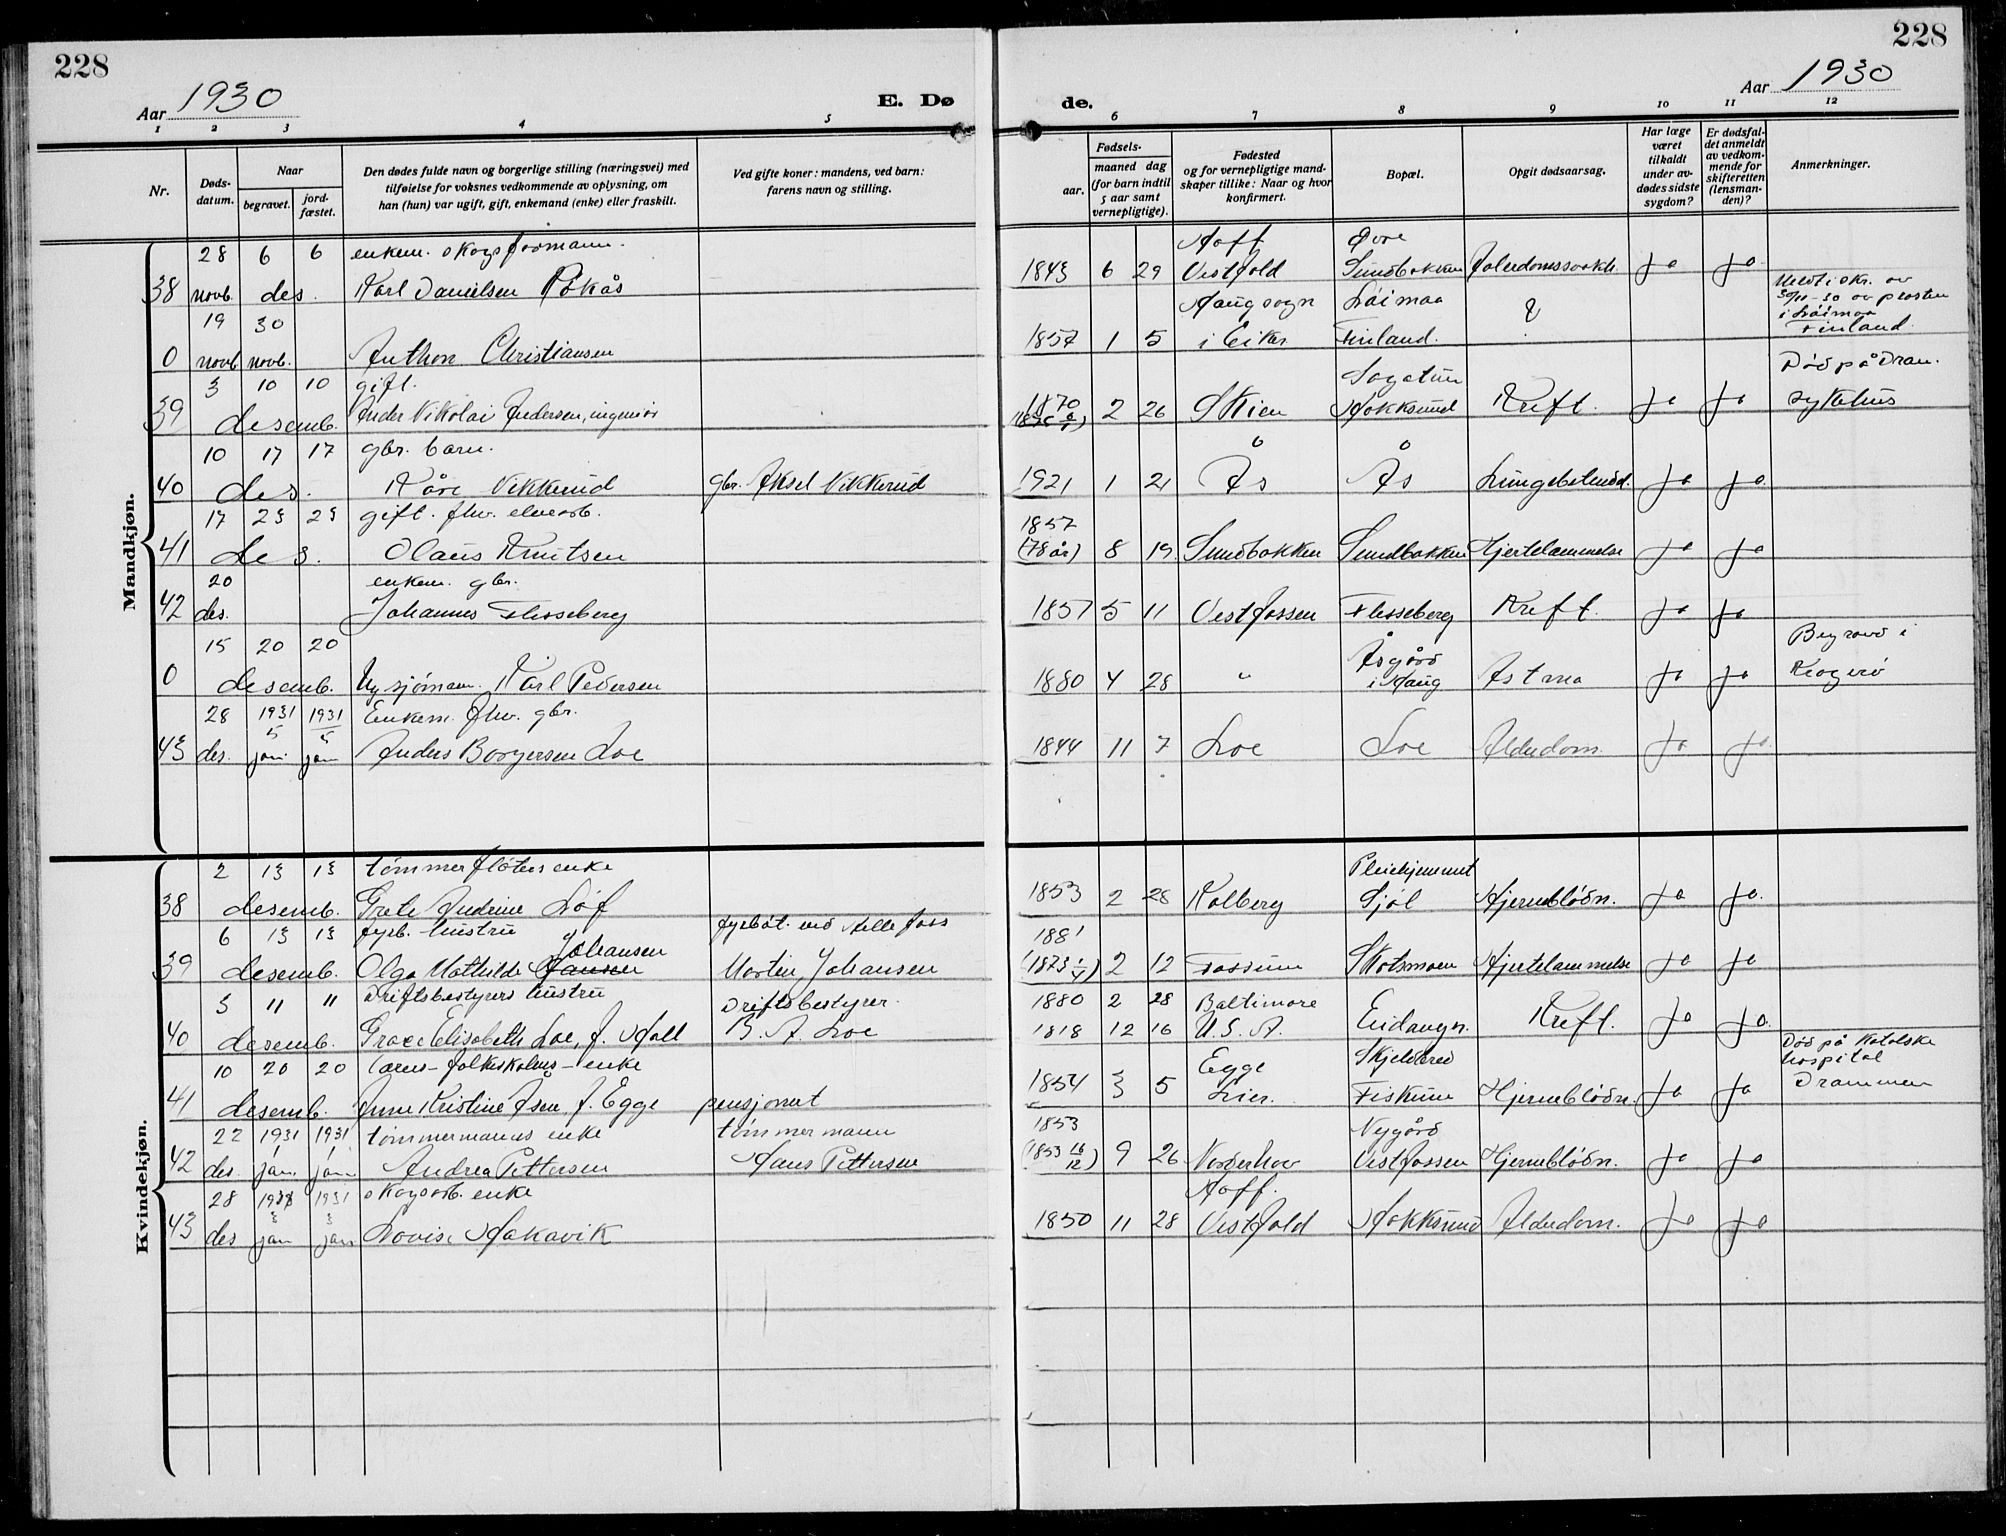 228
228
Aar 1930
E. Dø
de.
Aar 1930
1 2 3 4 5 6 7 8 9 10 11 12
Nr.
Døds-
datum.
Naar
begravet.
jord-
fæstet.
Den dødes fulde navn og borgerlige stilling (næringsvei) med
tilføielse for voksnes vedkommende av oplysning, om
han (hun) var ugift, gift, enkemand (enke) eller fraskilt.
Ved gifte koner: mandens, ved barn:
farens navn og stilling.
Fødsels-
aar.
maaned dag
(for barn indtil
5 aar samt
vernepligtige).
Fødested
og for vernepligtige mand-
skaper tillike: Naar og hvor
konfirmert.
Bopæl.
Opgit dødsaarsag.
Har læge
været
tilkaldt
under av-
dødes sidste
sygdom?
Er dødsfal-
det anmeldt
av vedkom-
mende for
skifteretten
(lensman-
den)?
Anmerkninger.
Mandkjøn.
28 6 6 enkem. skogsformann. Hoff Øvre
38 novb. des. Karl Danielsen Råkås 1843 6 29 Vestfold Sundbakken Ja Ja
19 30 Haug sogn Loimaa ? Meldt i skr. av
30/11-30 av prosten
i Loimaa
0 novb novb. Anthon Christiansen 1857 1 5 i Eiker Finland. Finland.
3 10 10 gift. 1870 Død på Dram.
39 desemb. Ander Nikolai Andersen, ingeniør 2 26 Skien Hokksund Kreft. Ja Ja sykehus
10 17 17 gbr. barn.
40 des. Kåre Vikkerud gbr. Aksel Vikkerud 1921 1 21 Ås Ås Lungebetend. Ja Ja
17 23 23 gift. fhv. elvearb. 1857
41 des. Olaus Knutsen (78 år) 8 19 Sundbakken Sundbakken Hjertelammelse Ja Ja
20 enkem. gbr.
42 des. Johannes Flesseberg 1857 5 11 Vestfossen Flesseberg Kreft. Ja Ja
15 20 20 Åsgård Begravd i
0 desemb. Ug sjømann. Karl Pedersen 1880 4 28 " i Haug Astma Ja Ja Kragerø
28 1931 1931 Enkem. fhv. gbr.
5 5
43 des. jan jan Anders Borgersen Loe 1844 11 7 Loe Loe Alderdom. Ja Ja
Kvindekjøn.
2 13 13 tømmerfløters enke Pleiehjemmet
38 desemb. Grete Andrine Løf 1853 2 28 Kolberg Sjøl Hjerneblødn. Ja Ja
6 13 13 fyrb. hustru Johansen fyrbøt. ved Hellefoss 1881
39 desemb. Olga Mathilde Jansen Morten Johansen 2 12 Fossum Skotsmoen Hjertelammelse Ja Ja
3 11 11 Driftsbestyrers hustru Driftsbestyrer. 1880 2 28 Baltimore
40 desemb. Grace Elisabeth Loe, f. Hall B. A. Loe 1818 12 16 U.S.A. Kreft. Ja Ja
10 20 20 folkeskolens - enke Egge Skjeldbred Død på katolske
hospital
41 desemb. Anne Kristine Åsen f. Egge pensjonert 1854 3 5 Lier. Fiskum Hjerneblødn. Ja Ja Drammen
22 1931 1931 tømmermanns enke tømmermann 1853 Nygård
42 des. jan. jan Andrea Pettersen Hans Pettersen (1853 16/12) 9 26 Norderhov Vestfossen Hjerneblødn. Ja Ja
28 1931 1931 skogsarb. enke Hoff.
3 3
43 des jan jan Lovise Hakavik 1850 11 28 Vestfold Hokksund Alderdom. Ja Ja